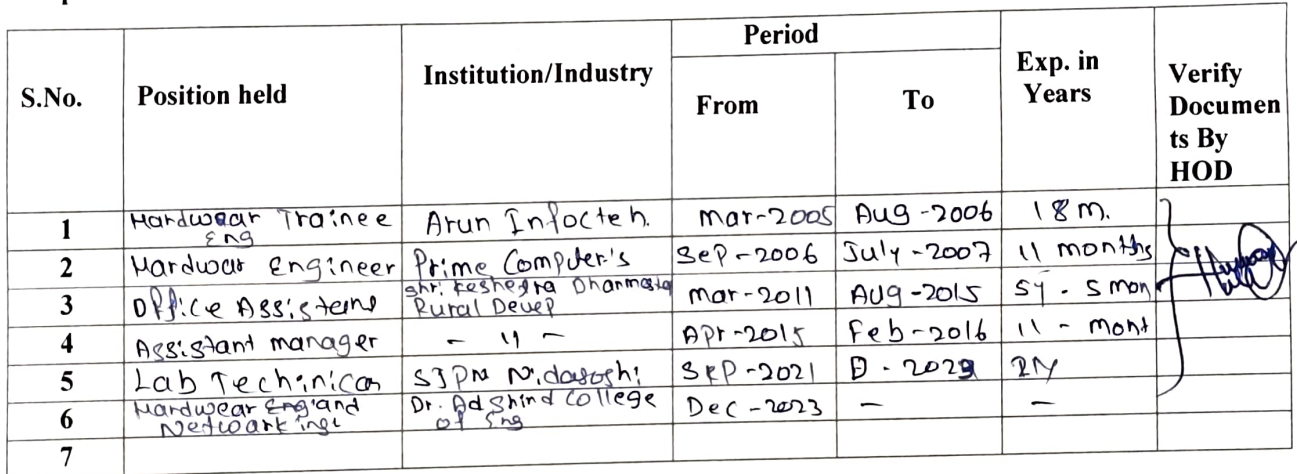 Period
S.No. Position held Institution/Industry From To Exp. in Years Verify Documen ts By HOD
1 Hardwear Trainee Eng Arun Infocteh. Mar-2005 Aug-2006 18 m.
2 Hardwar Engineer Prime Computer's Sep-2006 July-2007 11 months
3 Office Assistems Shri. Keshegra Dharmasta Rural Devep Mar-2011 AUG-2015 5y - 5 mon
4 Assistant manager - 11 - Apr-2015 Feb-2016 11 - mont
5 Lab Techinican SJPN Nidasoshi SEP-2021 D - 2023 2Y
6 Hardwear Eng and Networking Dr. Ad Shind College of Eng Dec-2023 - -
7